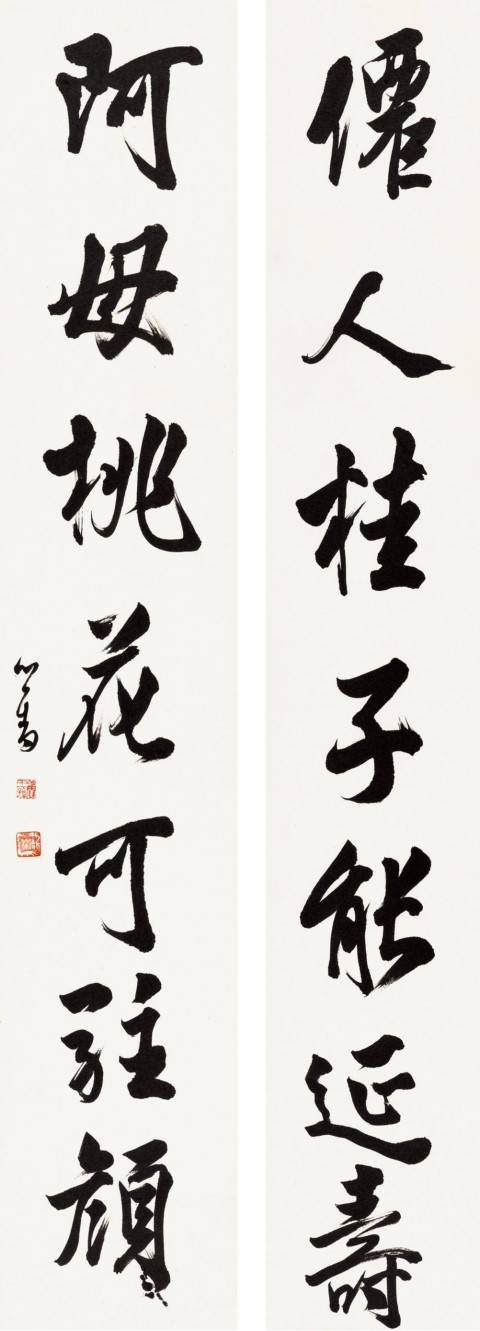 僊人桂子能延壽
阿母桃花可駐顏
心畬